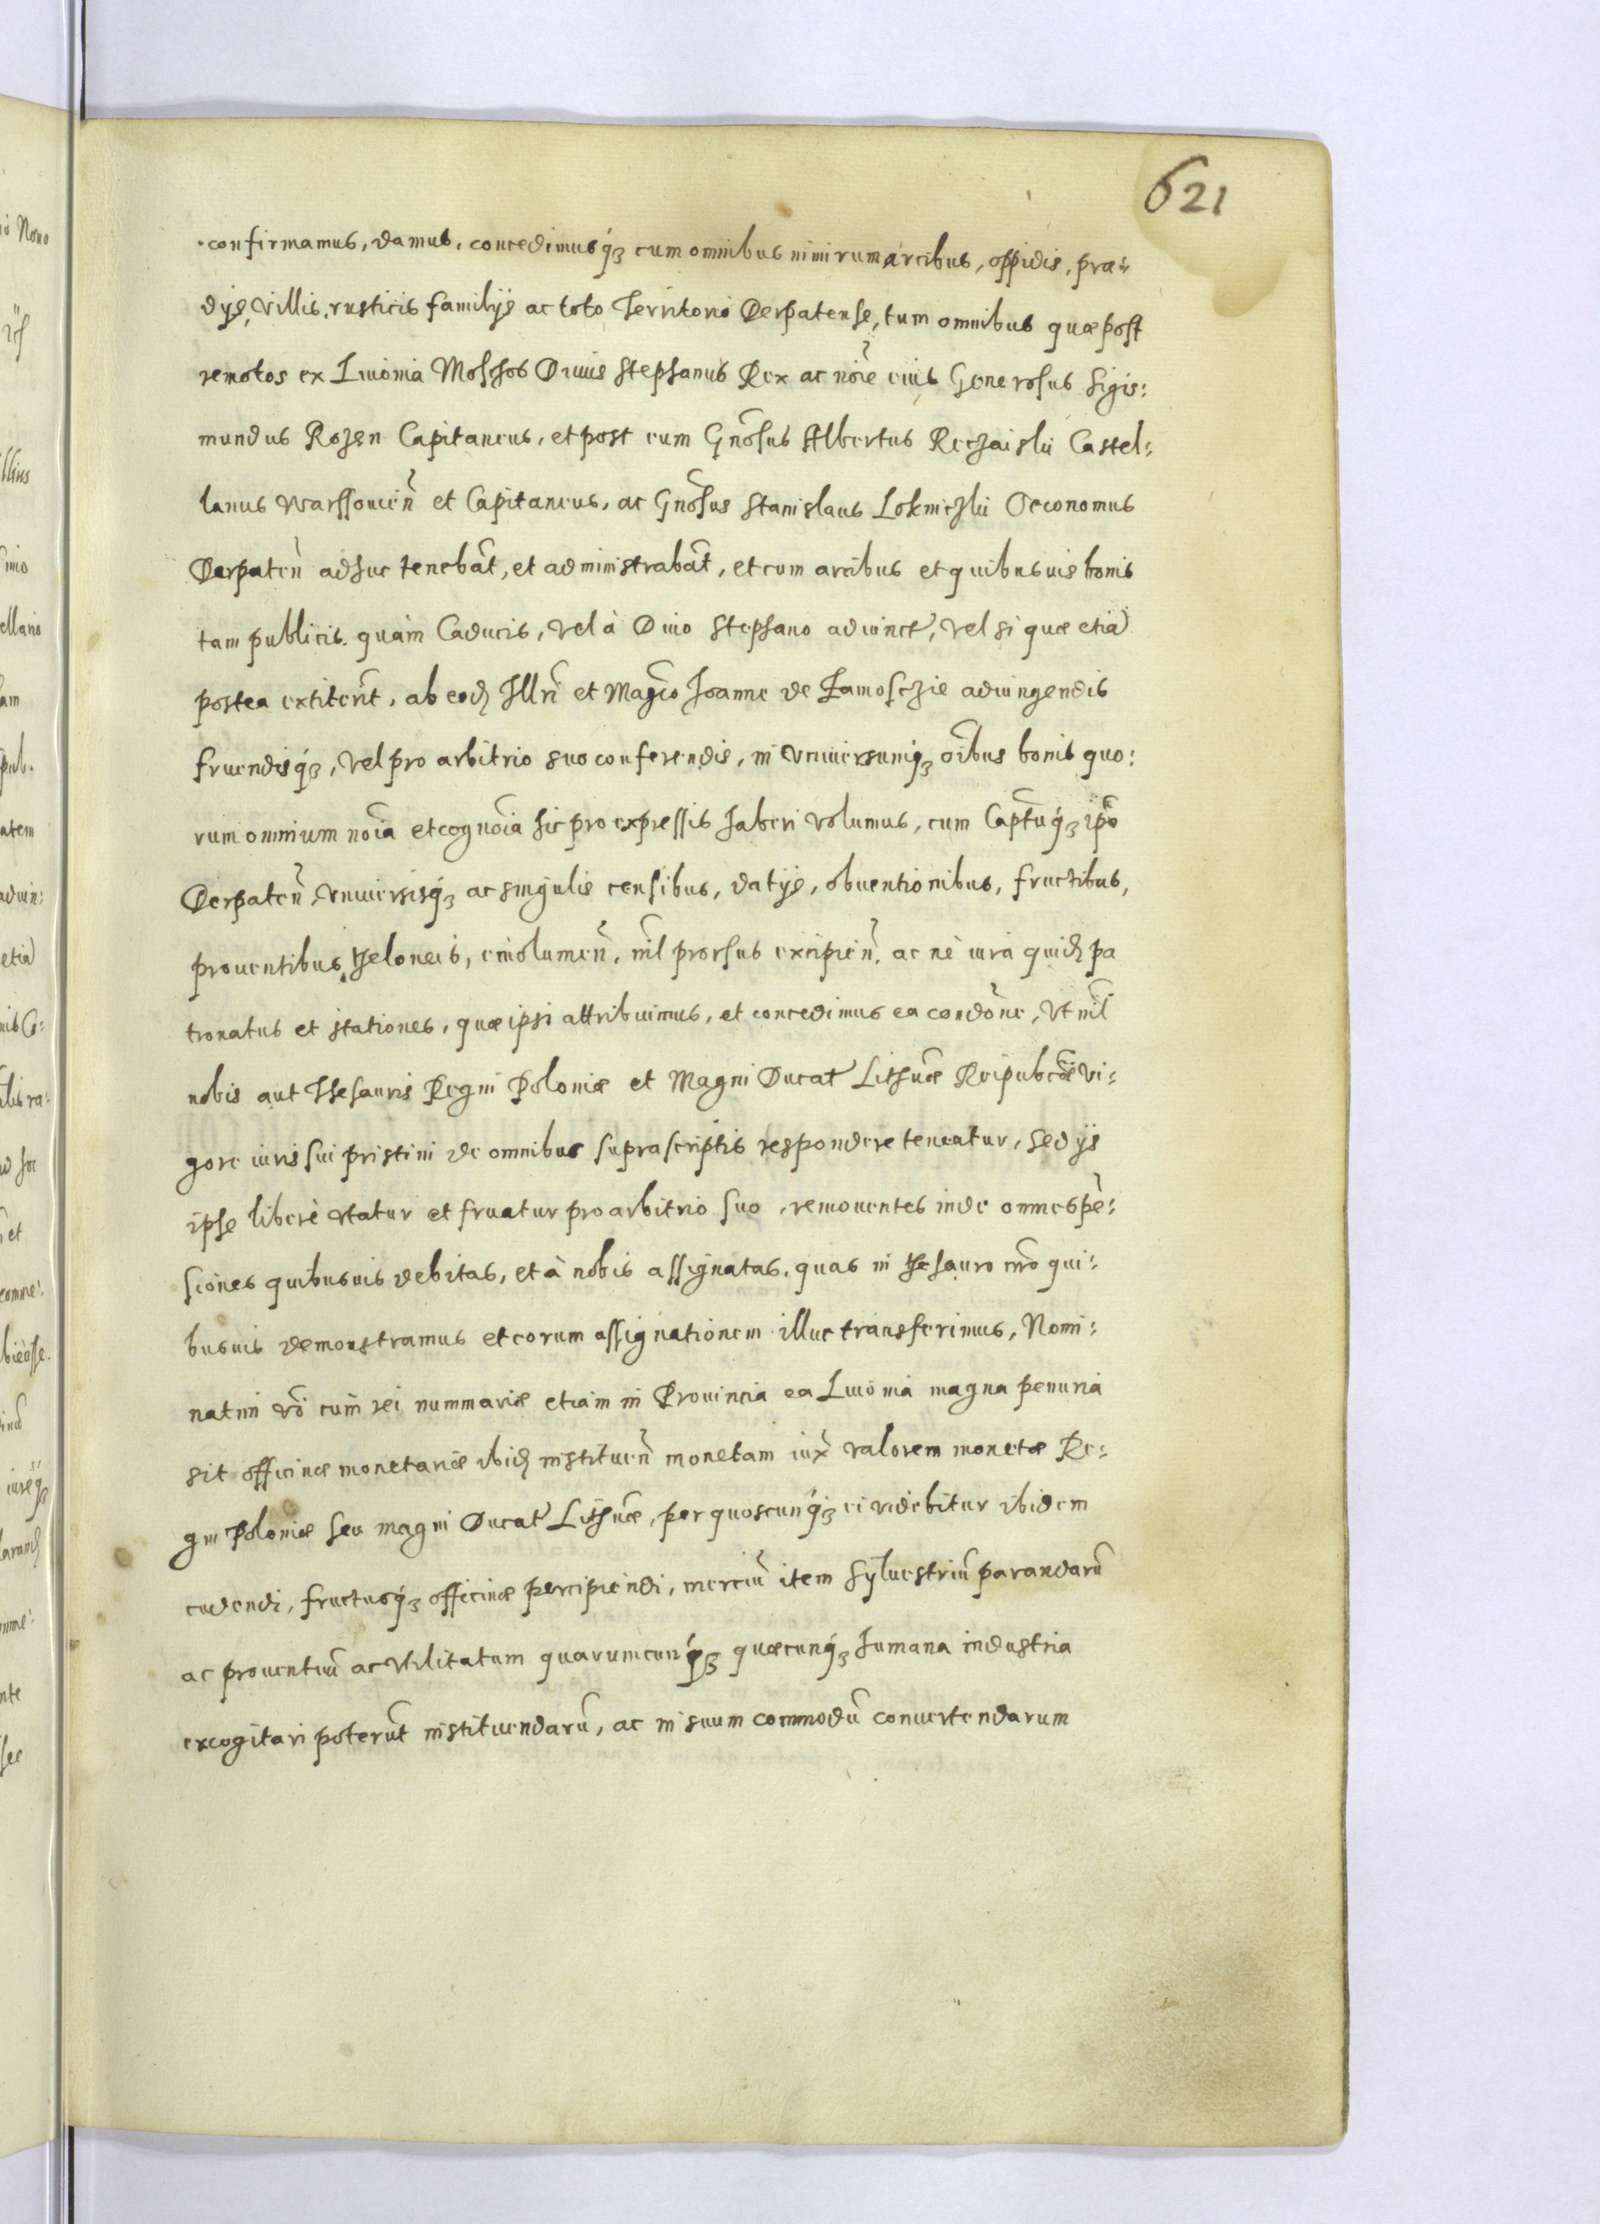 621
confirmamus, damus, concedimusq́ꝫ cum omnibus nimirum arcibus, oppidis, præ:
dijs, villis, rusticis familijs ac toto Territorio Derpatense, tum omnibus quæ post
remotos ex Liuonia Moschos Diuus Stephanus Rex ac nõie eius Generosus Sigis:
mundus Rozen Capitaneus, et post eum Gnõsus Albertus Reczaislii Castel:
lanus warssouieñ et Capitaneus, ac Gnõsus Stanislaus Lokniczlii Oeconomus
Derpateñ adhuc tenebãt, et administrabãt, et cum arcibus et quibusuis bonis
tam publicis quàm Caducis, vel à Diuo Stephano adiunct, vel si quæ etiã
postea extiterĩt, ab eod Illrĩ et Magcõ Joanne de Zamosczie adiungendis
fruendisq́ꝫ, vel pro arbitrio suo conferendis, in vniuersumqꝫ oĩbus bonis quo:
rum omnium nõia et cognõia hic pro expressis haberi volumus, cum Captũq́ꝫ ipõ
Derpateñ, vniuersisq́ꝫ ac singulis censibus, datijs, obuentionibus, fructibus,
prouentibus, theloneis, emolumeñ, nil̃ prorsus excipieñ. ac nè iura quid pa
tronatus et stationes, quæ ipsi attribuimus, et concedimus ea condõne, vt nil̃
nobis aut Thesauris Regni Poloniæ et Magni Ducat Lithuæ̃ Reipubcæ̃ vi:
gore iuris sui pristini de omnibus suprascriptis respondere teneatur, sed ijs
ipse liberè vtatur et fruatur pro arbitrio suo, remouentes inde omnes pẽ:
siones quibusuis debitas, et à nobis assignatas, quas in thesauro nrõ qui:
busuis demonstramus et eorum assignationem illuc transferimus, Nomi:
natim vrõ cum rei nummariæ etiam in Prouincia ea Liuonia magna penuria
sit officinæ monetariæ ibid instituẽn monetam iux̃ valorem monetæ Re:
gni Poloniæ seu magni Ducat Lithuæ̃, per quoscunq́ꝫ ei videbitur ibidem
cudendi, fructusq́ꝫ officinæ percipiendi, merciũ item syluestriũ parandarũ
ac prouentuũ ac vtilitatum quarumcunq́ꝫ quæcunq́ꝫ humana industria
excogitari poterũt instituendarũ, ac in suum commodũ conuertendarum